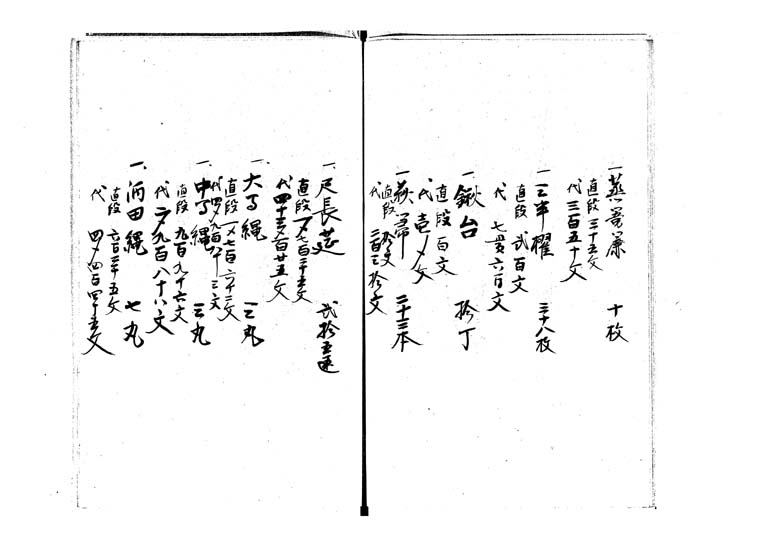 一蒸籠簾 十枚
直段三十五文
代三百五十文
一三半櫂 三十八枚
直段弐百文
代 七貫六百文
一鍬台 拾丁
直段百文
代壱〆文
一萩箒 二十三本
直段拾文
代二百三拾文
一尺長莚 弐拾五
直段一〆七百三十五文
代四十三〆三百廿五文
一大 縄 三丸
直段一〆七百六十三文
一中 縄 三丸
直段九百九十六文
代二〆九百八十八文
一 田縄 七丸
直段六百三十五文
代 四〆四百四十五文